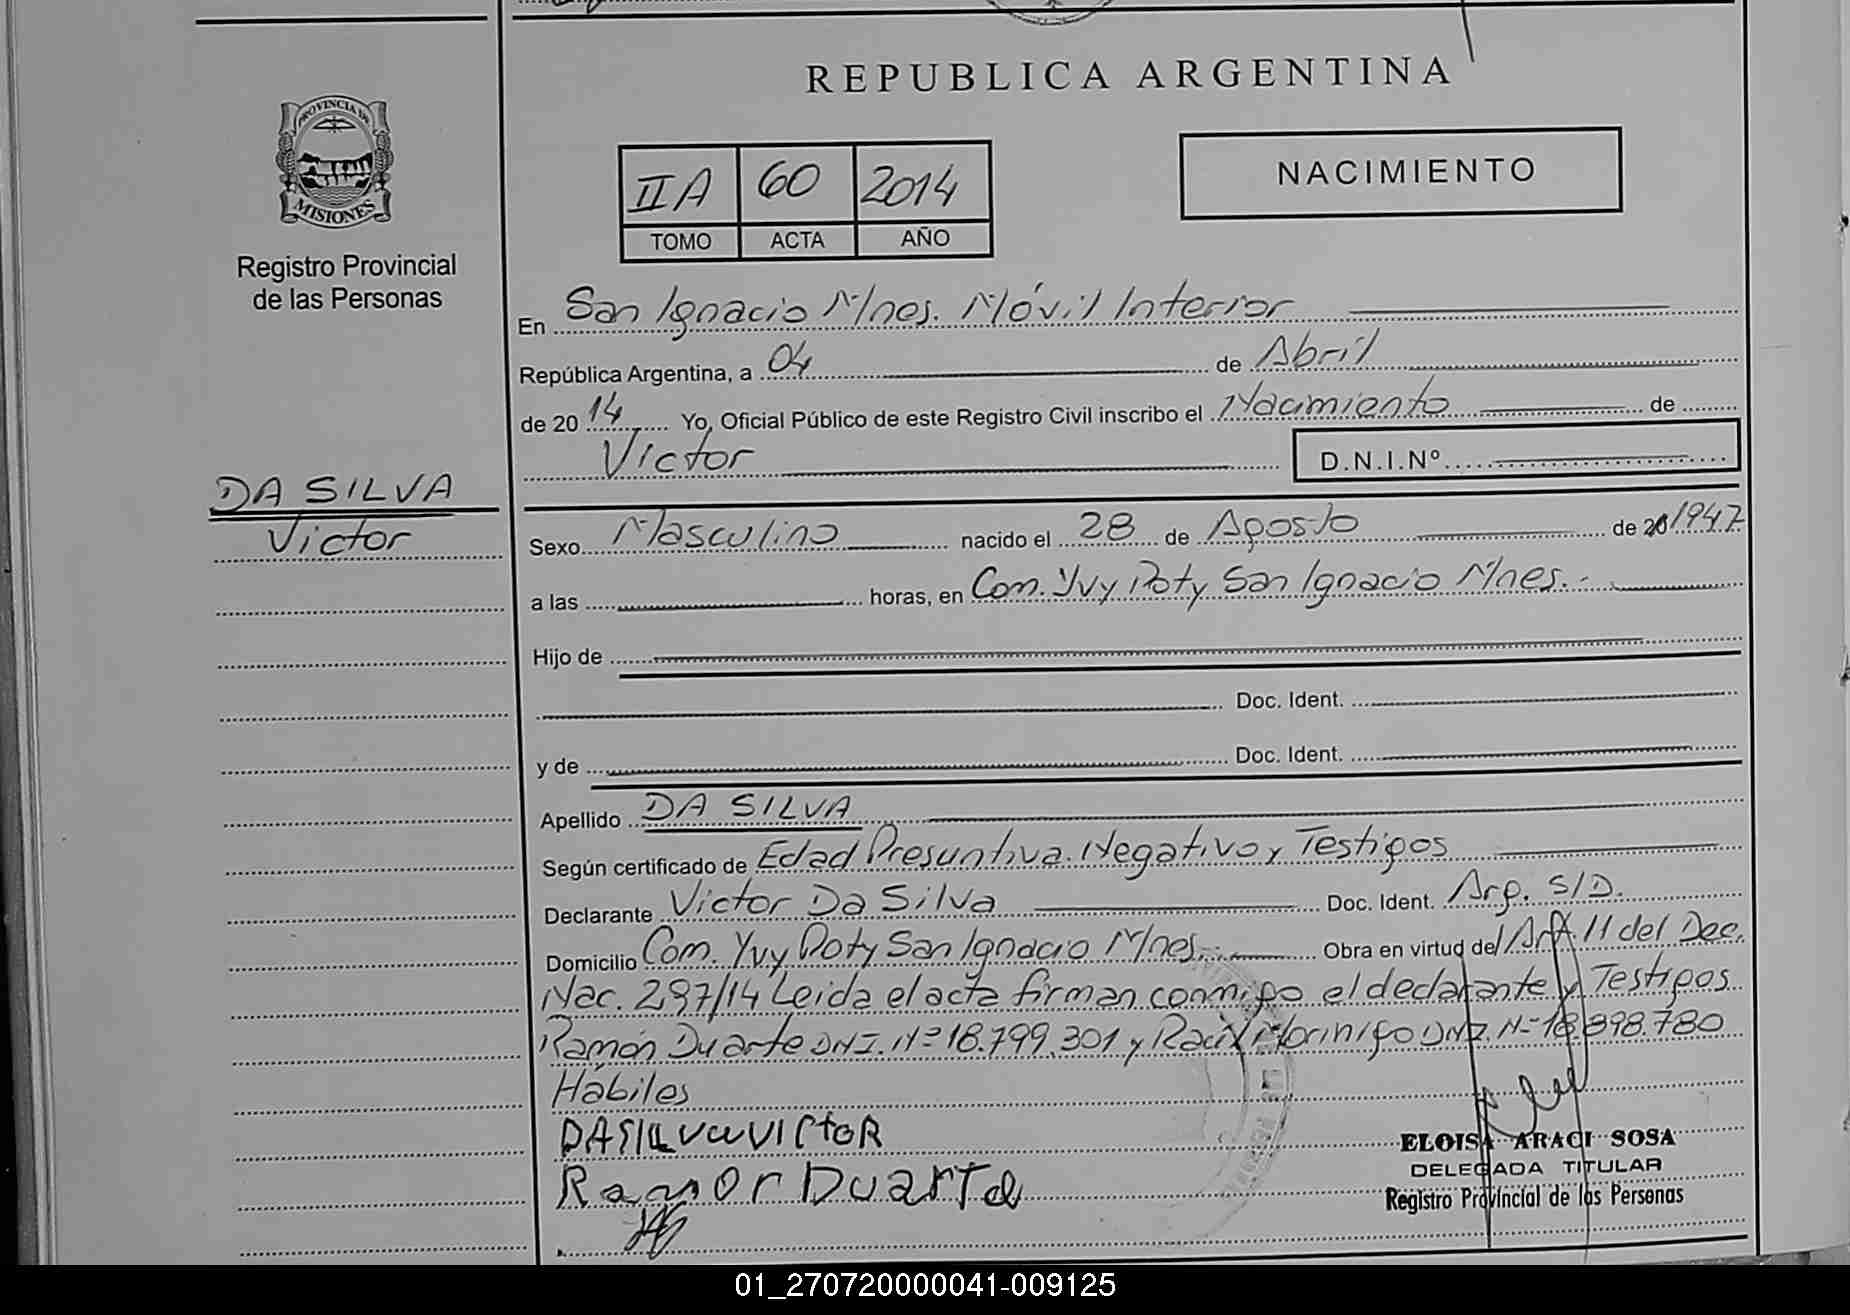 REPUBLICA ARGENTINA
PROVINCIA DE
MISIONES
Registro Provincial
de las Personas
IIA 60 2014
TOMO ACTA AÑO
NACIMIENTO
En San Ignacio Mnes. Móvil Interior
República Argentina, a 04 de Abril
de 2014 Yo, Oficial Público de este Registro Civil inscribo el Nacimiento de
Victor D.N.I.Nº
DA SILVA
Victor
Sexo Masculino nacido el 28 de Agosto de 20 1947
a las horas, en Com. Yvy Poty San Ignacio Mnes.
Hijo de
Doc. Ident.
y de Doc. Ident.
Apellido DA SILVA
Según certificado de Edad Presuntiva. Negativo y Testigos
Declarante Victor Da Silva Doc. Ident. Arg. S/D.
Domicilio Com. Yvy Poty San Ignacio Mnes. Obra en virtud del Art. 11 del Dec.
Nac. 297/14 Leida el acta firman conmigo el declarante y Testigos
Ramón Duarte DNI. Nº 18.799.301 y Raúl Morinigo DNI. Nº 18.898.780
Hábiles
DASILVA VICTOR
Ramor Duarte
ELOISA ARACI SOSA
DELEGADA TITULAR
Registro Provincial de las Personas
01_270720000041-009125